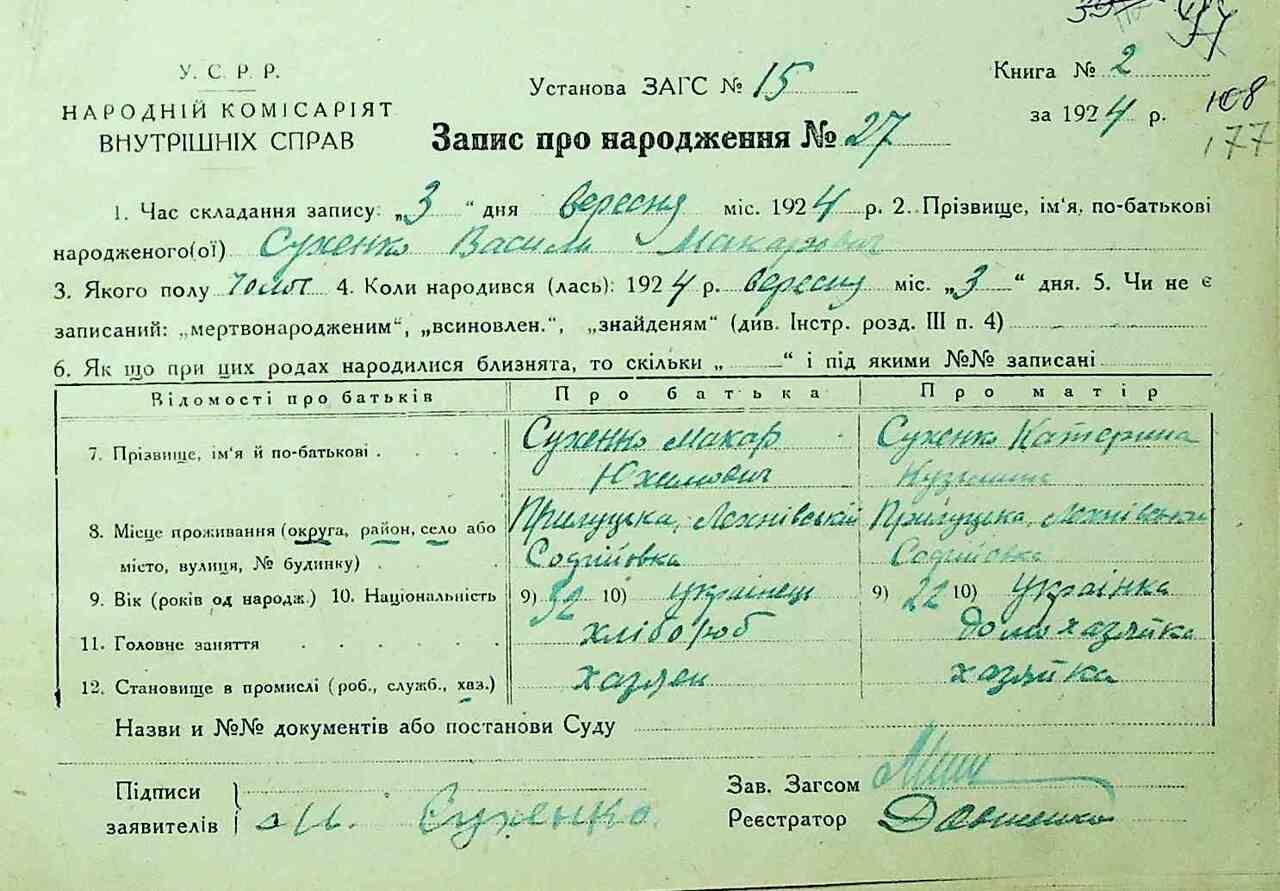 У. С. Р. Р.
НАРОДНІЙ КОМІСАРІЯТ
ВНУТРІШНІХ СПРАВ
Установа ЗАГС № 15
Запис про народження № 27
Книга № 2
за 1924 р.
108
177
1. Час складання запису: „3“ дня вересня міс. 1924 р. 2. Прізвище, ім'я, по-батькові
народженого(ої) Сухенко Василь Макарович
3. Якого полу чолов 4. Коли народився (лась): 1924 р. вересня міс. „3“ дня. 5. Чи не є
записаний: „мертвонародженим“, „всиновлен.“, „знайденям“ (див. Інстр. розд. III п. 4)
6. Як що при цих родах народилися близнята, то скільки „ “ і під якими №№ записані
Відомості про батьків Про батька Про матір
7. Прізвище, ім'я й по-батькові . Сухенко Макар Юхимович Сухенко Катерина
8. Місце проживання (округа, район, село або місто, вулиця, № будинку) Прилуцька, Лохнівський Софіївка Прилуцька, Лохнівський Софіївка
9. Вік (років од народж.) 10. Національність 9) 32 10) українець 9) 22 10) українка
11. Головне заняття хлібороб домохазяйка
12. Становище в промислі (роб., служб., хаз.) хазяен хазяйка
Назви и №№ документів або постанови Суду
Підписи
заявителів М. Сухенко
Зав. Загсом
Реєстратор